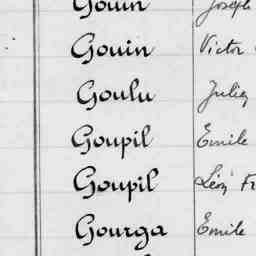 Gouin Joseph
Gouin Victor
Goulu Julien
Goupil Emile
Goupil Léon Fr
Gourga Emile